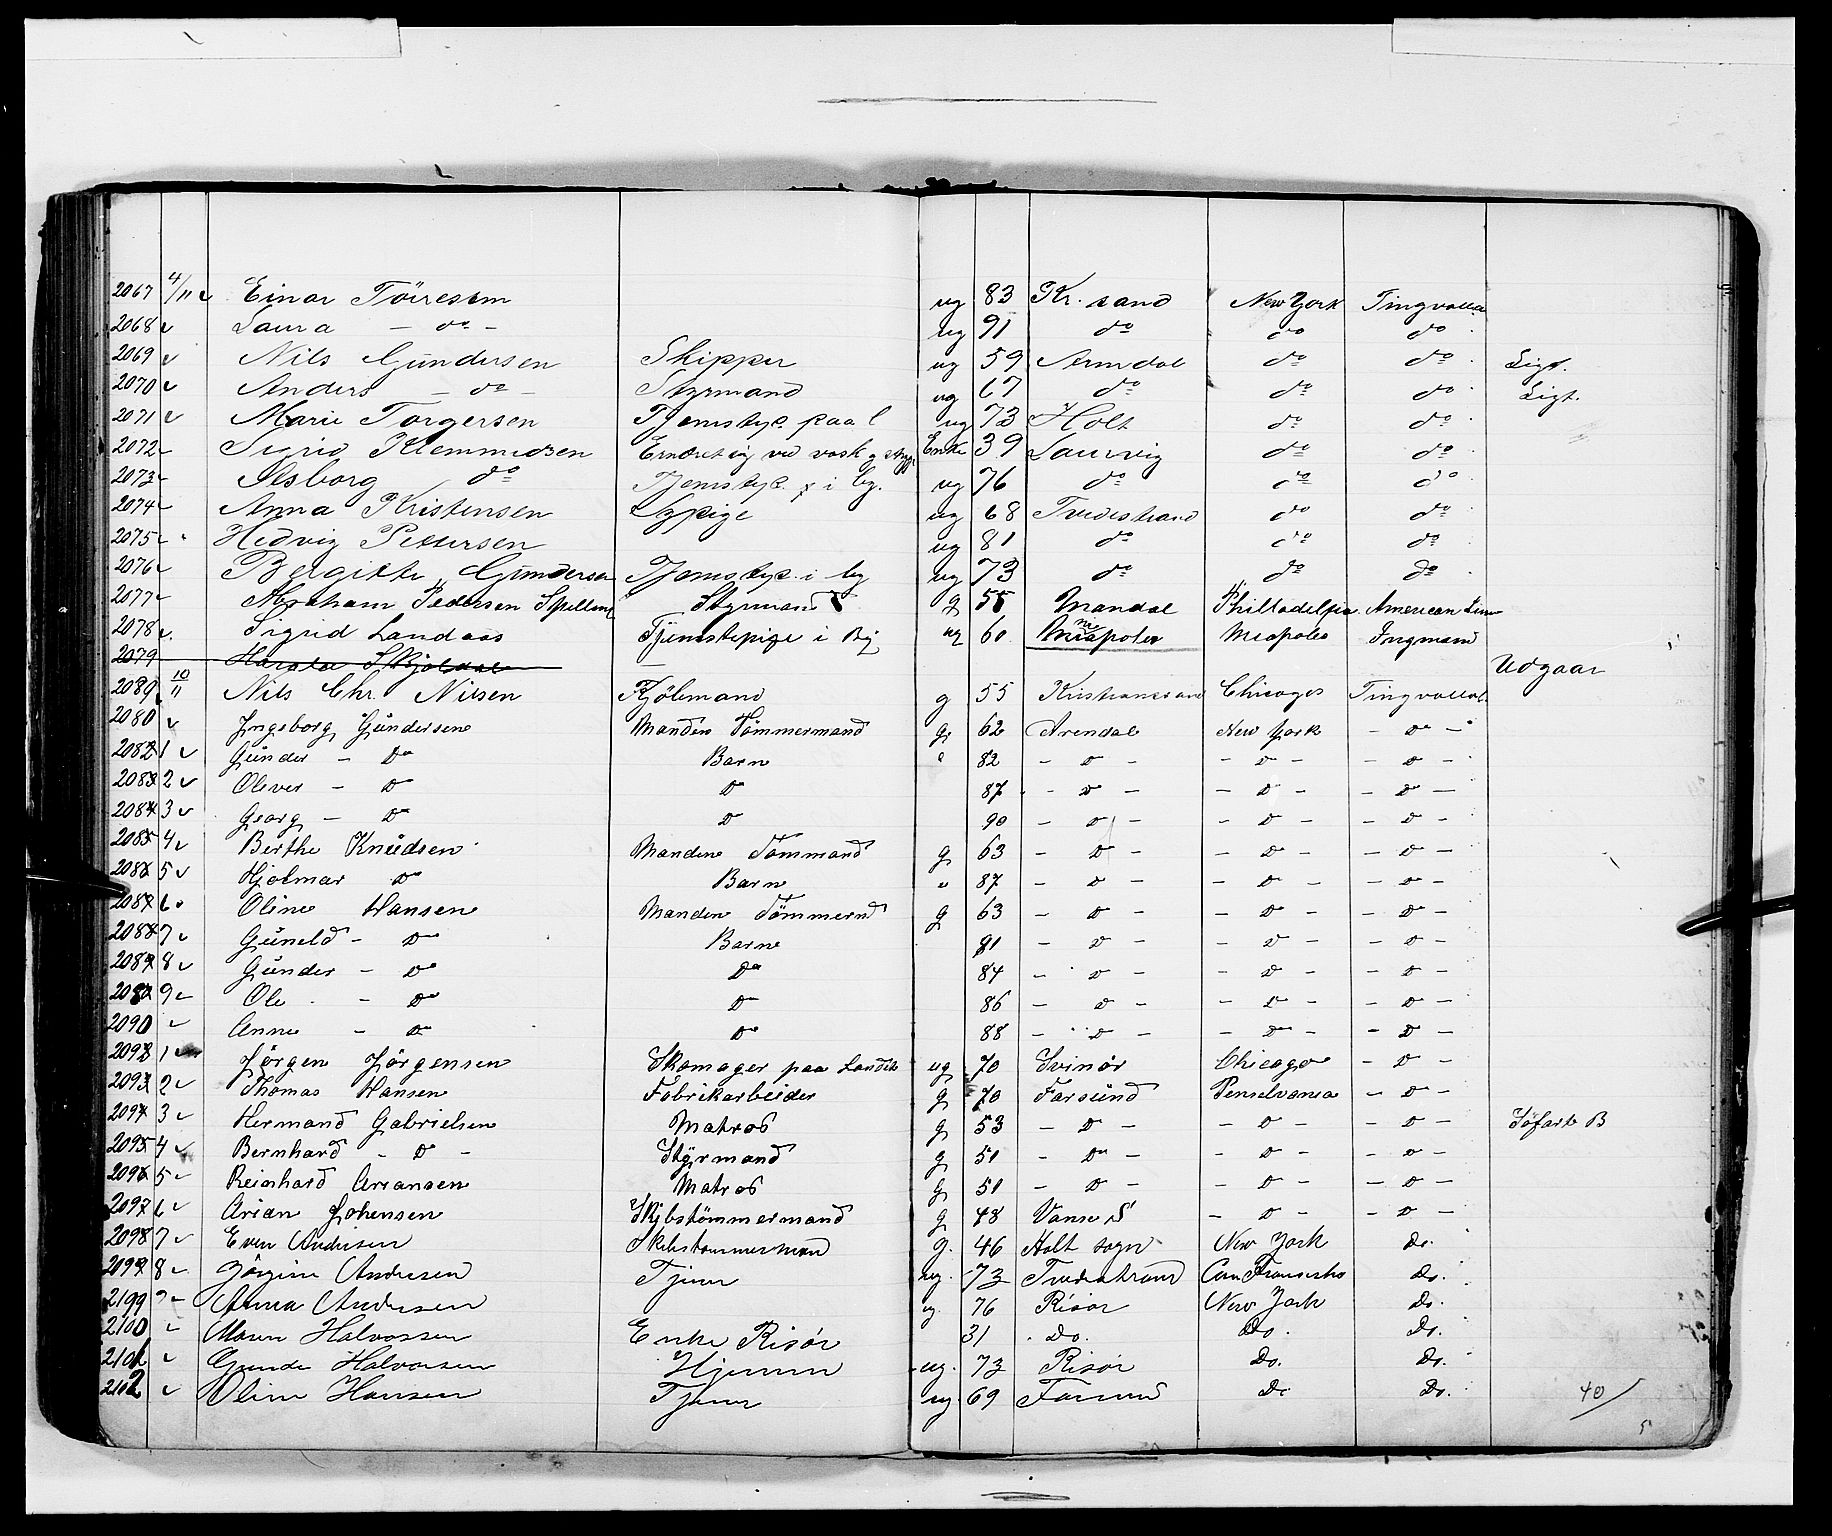 2067 4/11 Einar Töiresem ug 83 Kr. sand New York Tingvalla
2068 Laura - do - ug 91 do do do
2069 Nils Gundersen Skipper ug 59 Arendal do do Sigt.
2070 Anders - do - Styrmand ug 67 do do do Sigt.
2071 Marie Torgersen Tjenstep. paa l ug 73 Holt do do
2072 Sigrid Klemmedsen Ernæret sig ved vask g Enke 39 Laurvig do do
2073 do Tjenstep. i by. ug 76 do do do
2074 Anna Kristensen Sypige ug 68 Tvedestrand do do
2075 Hedvig Pettersen ug 81 do do do
2076 Bergitte Gundersen Tjenstep. i by ug 73 do do do
2077 Abraham Pedersen Styrmand g 55 Mandal Philladelpia American Line
2078 Sigrid Landaas Tjenstepige i By ug 60 Mispoles Meapoles Ingmand
2079 Harald Skjoldal Udgaar
2080 10/11 Nils Chr. Nilsen Kjöbmand g 55 Kristianssand Chicago Tingvalla
2080 Ingeborg Gundersene Manden Tömmermand g 62 Arendal New York - D -
2081 Günder - Do Barn 82 - D - - D - - D -
2082 Olever - D D 87 - D - - D - - D -
2083 Georg - D D 90 - D - - D - - D -
2084 Berthe Knüdsen Manden Tömmand g 63 - D - - D - - D -
2085 Hjelmar Do Barn 87 - D - - D - - D -
2086 Oline Hansen Manden Tömmernd g 63 - D - - D - - D -
2087 Güneld - Do Barn 81 - D - - D - - D -
2088 Günder - Do Do 84 - D - - D - - D -
2089 Ole - Do Do 86 - D - - D - - D -
2090 Anne - Do Do 88 - D - - D - - D -
2091 Jörgen Jörgensen Skomager paa Landet ug 70 Svinör Chicago - D -
2092 Thomas Hansen Fabrikarbeider g 70 Farsünd Penselvania - D -
2093 Hermand Gabrielsen Matros g 53 - D - - D - - D - Söfarts B
2094 Bernhard - D - Styrmand g 51 - Do - - D - - D -
2095 Reinhard Ariansen Matros g 51 - D - - D - - D -
2096 Arian Johensen Skibstömmermand g 48 Vanse S - D - - D -
2097 Even Andersen Skibstommermand g. 46 Holt sogn New York Do.
2098 Jörgine Andresen Tjener ug. 73 Tvedestrand San Fransisko Do.
2199 Anna Andersen ug. 76 Risör New York Do.
2100 Maren Halvorsen Enke Risör 31 Do. Do. Do.
2101 Gunda Halvorsen Hjemm ug. 73 Risör Do. Do.
2102 Oline Hansen Tjener ug. 69 Farsund Do Do. 40/
5